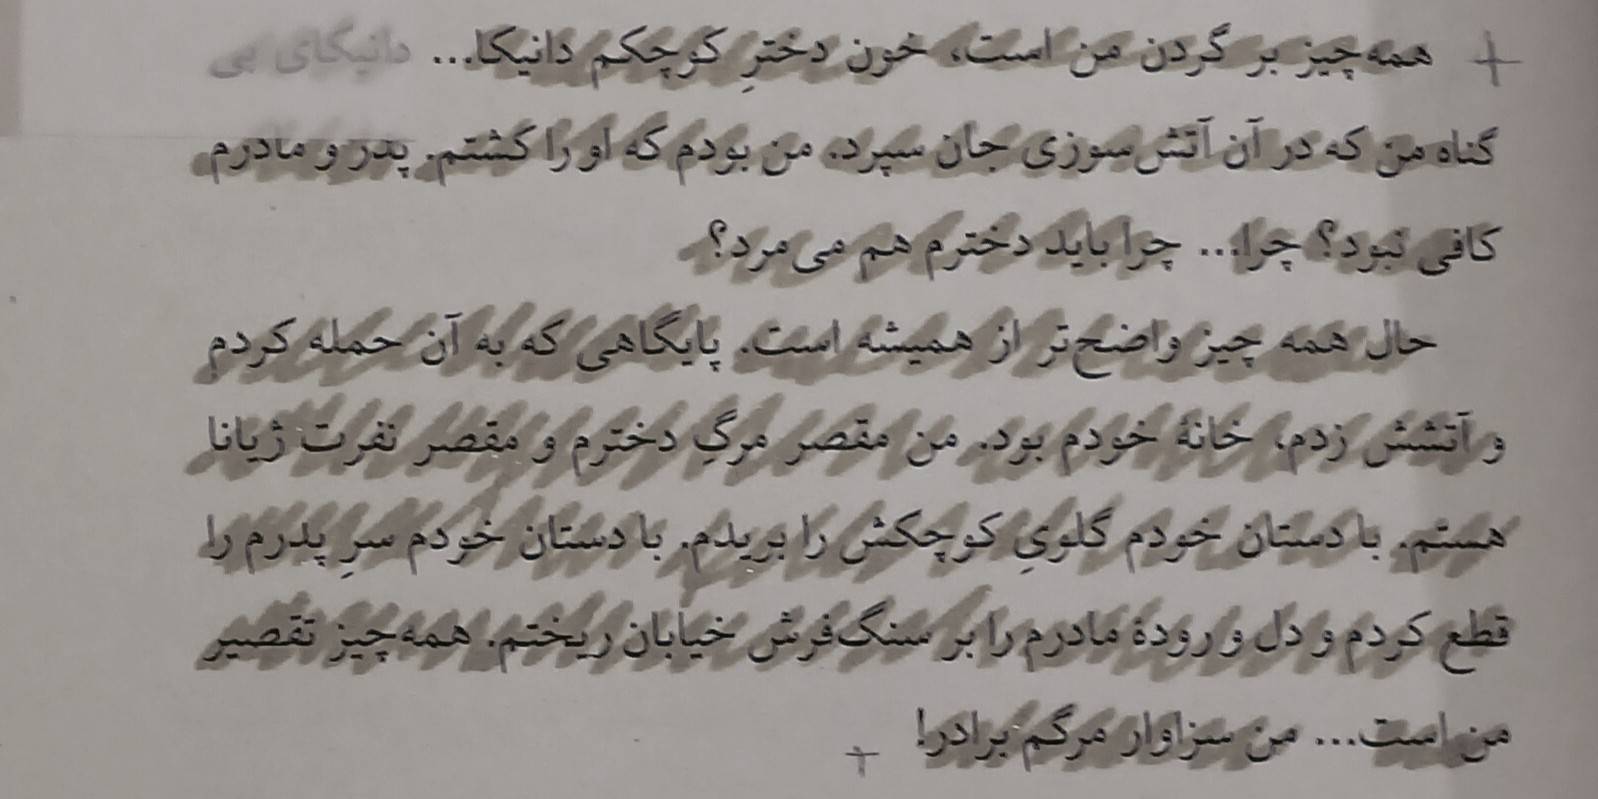 + همه‌چیز بر گردن من است، خون دخترِ کوچکم دانیکا... دانیکای بی
گناه من که در آن آتش‌سوزی جان سپرد. من بودم که او را کشتم. پدر و مادرم
کافی نبود؟ چرا... چرا باید دخترم هم می‌مرد؟
حال همه چیز واضح‌تر از همیشه است. پایگاهی که به آن حمله کردم
و آتشش زدم، خانهٔ خودم بود. من مقصر مرگِ دخترم و مقصر نفرت ژیانا
هستم. با دستان خودم گلویِ کوچکش را بریدم. با دستان خودم سرِ پدرم را
قطع کردم و دل و رودهٔ مادرم را بر سنگ‌فرش خیابان ریختم. همه‌چیز تقصیر
من است... من سزاوار مرگم برادر! +